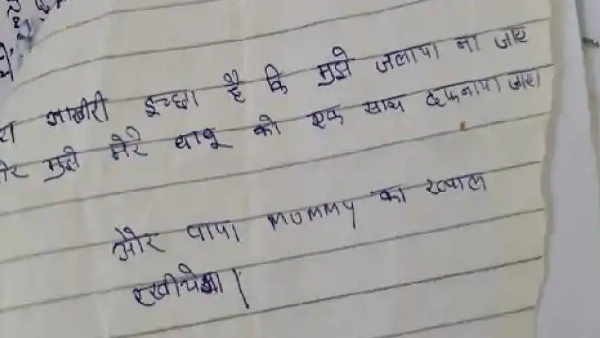 आखीरी इच्छा है कि मुझे जलाया ना जाए
मुझे मेरे बाबू को एक साथ दफनाया जाए।
और पापा MUMMY का ख्याल
रखीयेगा।